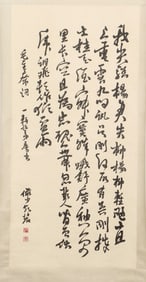 我失骄杨君失柳杨柳轻飏直
上重霄九问讯吴刚何所有吴刚捧
出桂花酒寂寞嫦娥舒广袖万
里长空且为忠魂舞忽报人间曾伏
虎泪飞顿作倾盆雨
毛主席词